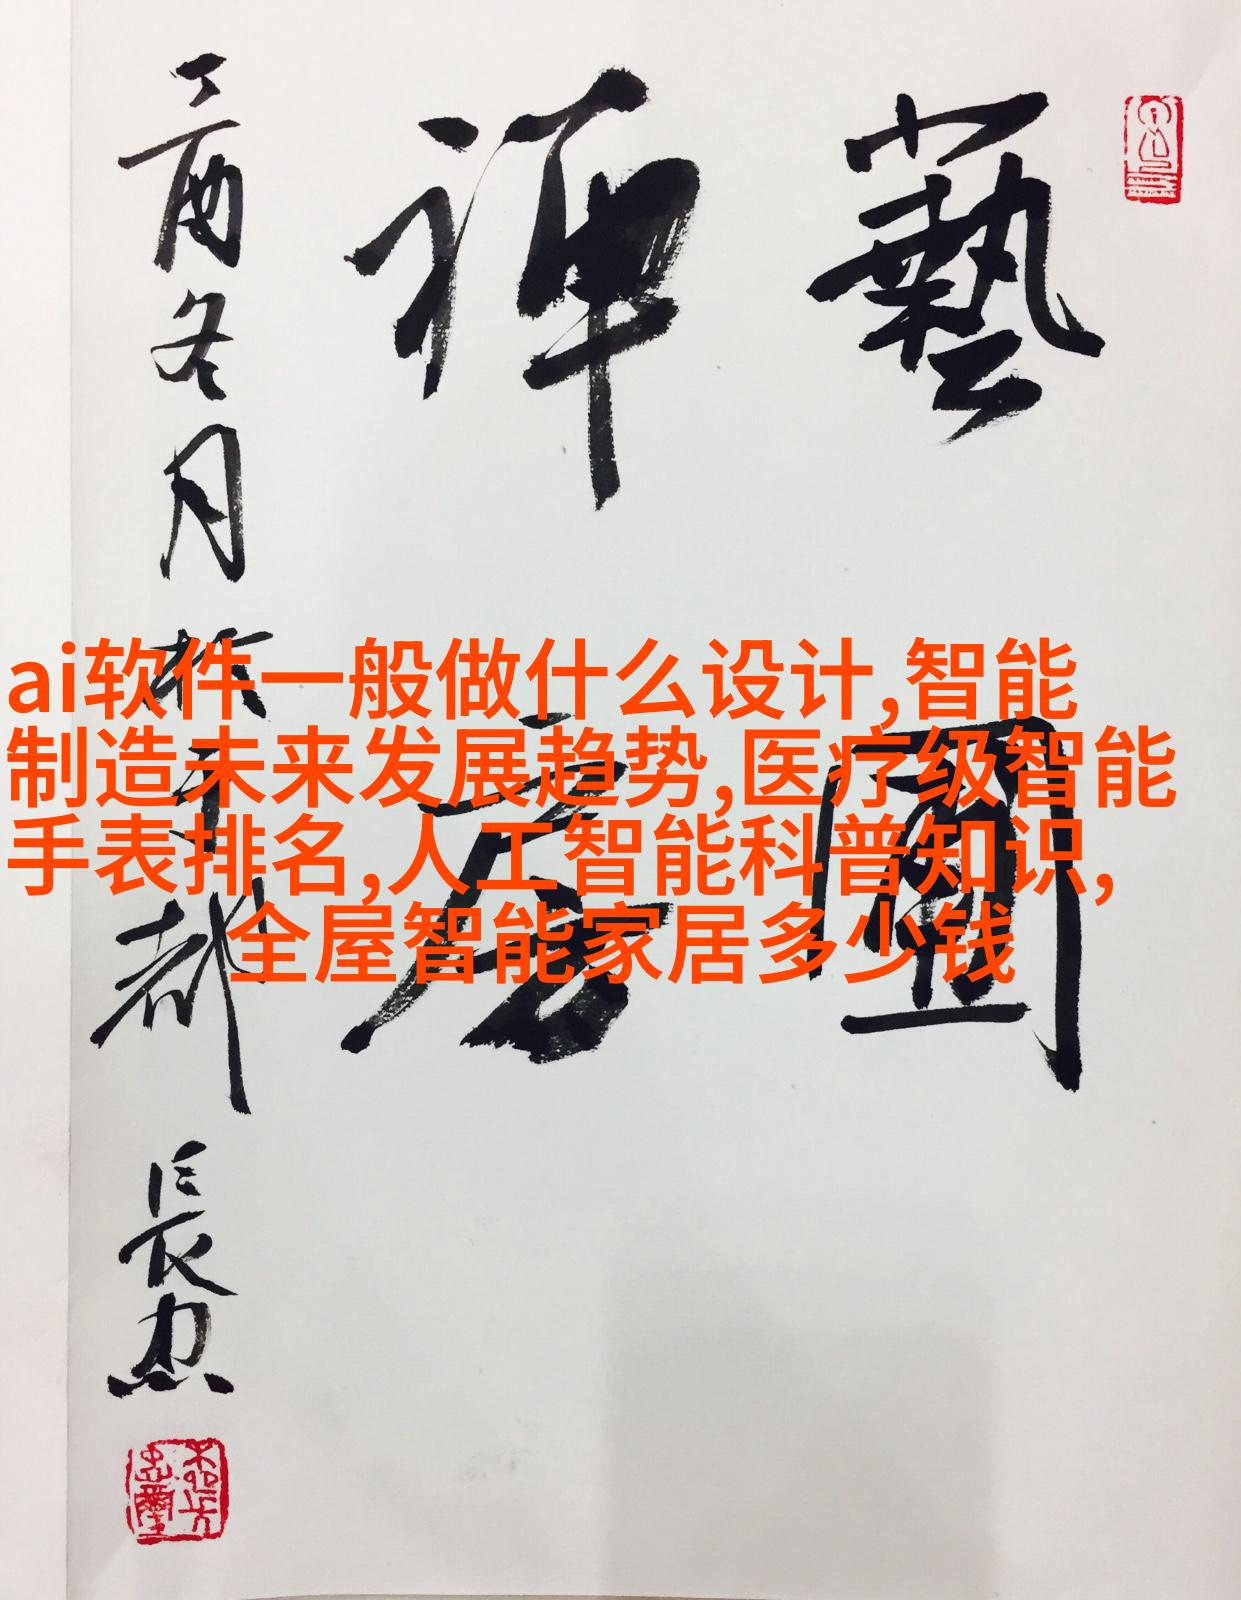 藝圃
禅房
丁酉冬月於
都
長忠
ai软件一般做什么设计,智能
制造未来发展趋势,医疗级智能
手表排名,人工智能科普知识,
全屋智能家居多少钱